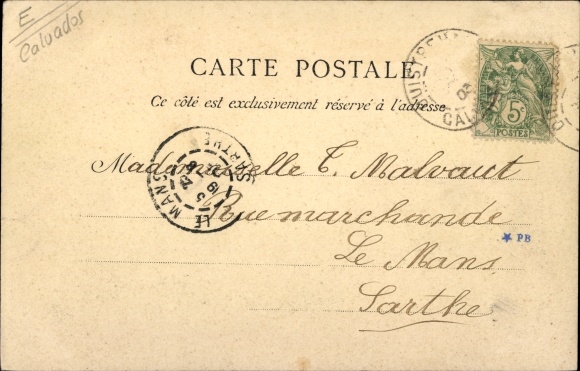 E
Calvados
CARTE POSTALE
Ce côté est exclusivement réservé à l'adresse
5c
POSTES
OUISTREHAM
CAL
LE MANS
SARTHE
Mademoiselle T. Malvaut
Rue marchande
Le Mans
Sarthe
PB